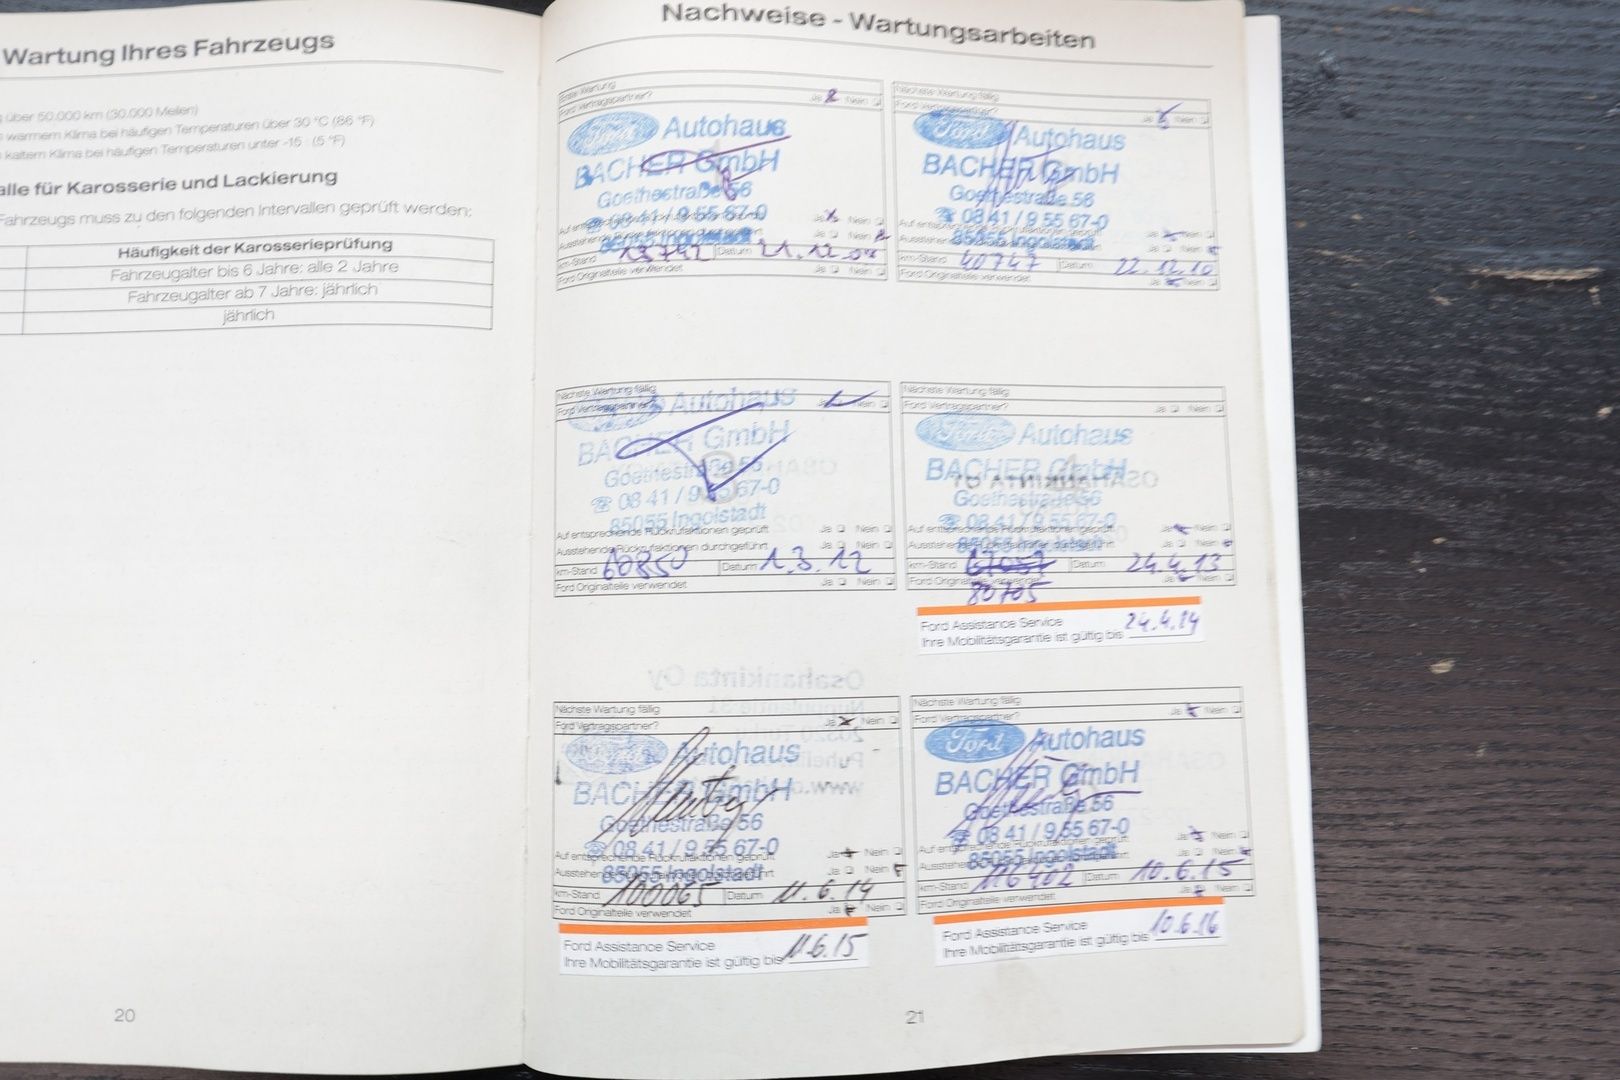 Wartung Ihres Fahrzeugs
über 50.000 km (30.000 Meilen)
warmem Klima bei häufigen Temperaturen über 30 °C (86 °F)
kaltem Klima bei häufigen Temperaturen unter -15 : (5 °F)
alle für Karosserie und Lackierung
Fahrzeugs muss zu den folgenden Intervallen geprüft werden:
Häufigkeit der Karosserieprüfung
Fahrzeugalter bis 6 Jahre: alle 2 Jahre
Fahrzeugalter ab 7 Jahre: jährlich
jährlich
20
Nachweise - Wartungsarbeiten
Erste Wartung
Ford Vertragspartner? Ja Nein
Ford Autohaus
BACHER GmbH
Goethestraße 56
08 41 / 9 55 67-0
85055 Ingolstadt
km-Stand Datum 21.12.09
Ford Originalteile verwendet Ja Nein
Nächste Wartung fällig
Ford Vertragspartner? Ja Nein
Ford Autohaus
BACHER GmbH
Goethestraße 56
08 41 / 9 55 67-0
85055 Ingolstadt
km-Stand 40747 Datum 22.12.10
Ford Originalteile verwendet Ja Nein
Nächste Wartung fällig
Ford Vertragspartner? Ja Nein
Autohaus
BACHER GmbH
Goethestraße 56
08 41 / 9 55 67-0
85055 Ingolstadt
Auf entsprechende Rückrufaktionen geprüft Ja Nein
Ausstehende Rückrufaktionen durchgeführt Ja Nein
km-Stand 60850 Datum 1.3.12
Ford Originalteile verwendet Ja Nein
Nächste Wartung fällig
Ford Vertragspartner? Ja Nein
Ford Autohaus
BACHER GmbH
Goethestraße 56
08 41 / 9 55 67-0
85055 Ingolstadt
Auf entsprechende Rückrufaktionen geprüft Ja Nein
Ausstehende Rückrufaktionen durchgeführt Ja Nein
km-Stand Datum 24.4.13
Ford Originalteile verwendet Ja Nein
80705
Ford Assistance Service
Ihre Mobilitätsgarantie ist gültig bis 24.4.14
Nächste Wartung fällig
Ford Vertragspartner? Ja Nein
Ford Autohaus
BACHER GmbH
Goethestraße 56
08 41 / 9 55 67-0
85055 Ingolstadt
Auf entsprechende Rückrufaktionen geprüft Ja Nein
km-Stand 100065 Datum 11.6.14
Ford Originalteile verwendet Ja Nein
Ford Assistance Service
Ihre Mobilitätsgarantie ist gültig bis 11.6.15
Nächste Wartung fällig
Ford Vertragspartner? Ja Nein
Ford Autohaus
BACHER GmbH
Goethestraße 56
08 41 / 9 55 67-0
85055 Ingolstadt
Auf entsprechende Rückrufaktionen geprüft Ja Nein
km-Stand 116402 Datum 10.6.15
Ford Originalteile verwendet Ja Nein
Ford Assistance Service
Ihre Mobilitätsgarantie ist gültig bis 10.6.16
21